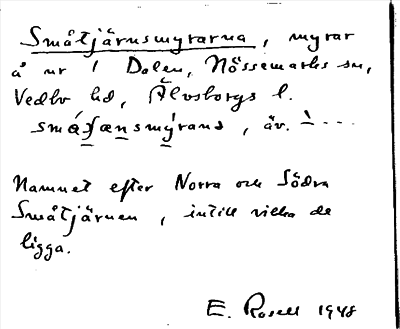 Småtjärnsmyrarna, myrar
å nr 1 Dalen, Nössemarks sn,
Vedbo hd, Älvsborgs l.
, äv. `---
Namnet efter Norra och Södra
Småtjärnen, intill vilka de
ligga.
E. Rosell 1948